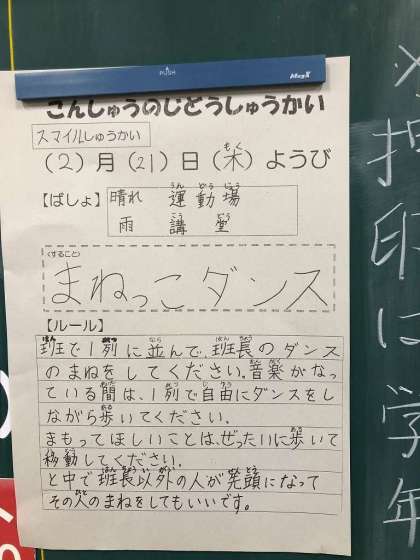 PUSH
MagX
こんしゅうのじどうしゅうかい
スマイルしゅうかい
(2)月(21)日(木)ようび
もく
【ばしょ】
晴れ 運動場
うんどうじょう
雨 講堂
こうどう
<すること>
まねっこダンス
【ルール】
班で1列に並んで、班長のダンス
のまねをしてください。音楽がなっ
ている間は、1列で自由にダンスをし
ながら歩いてください。
まもってほしいことは、ぜったいに歩いて
移動してください。
と中で班長以外の人が先頭になって
その人のまねをしてもいいです。
※押印は学年